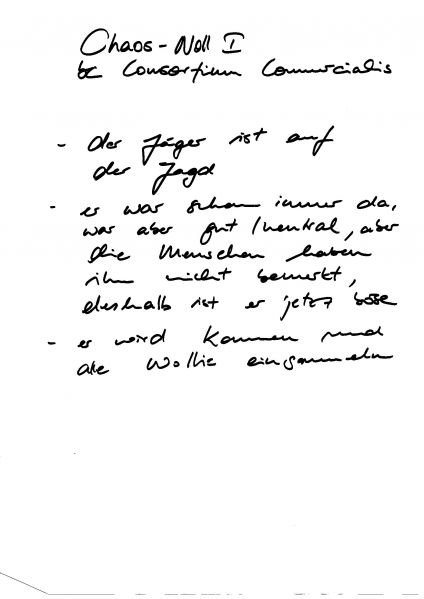 Chaos-Noll I
bc Consortium Commercialis
- der Jäger ist auf
der Jagd
- er war schon immer da,
war aber gut/neutral, aber
die Menschen haben
ihn nicht bemerkt,
deshalb ist er jetzt böse
- er wird kommen und
alle Wollie einsammeln